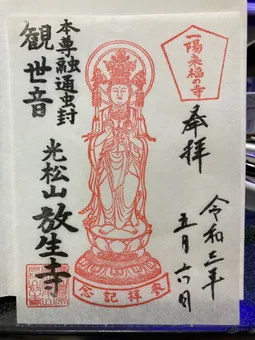 一陽来福の寺
奉拝
令和三年
五月六日
本尊融通虫封
観世音
光松山
放生寺
参拝記念